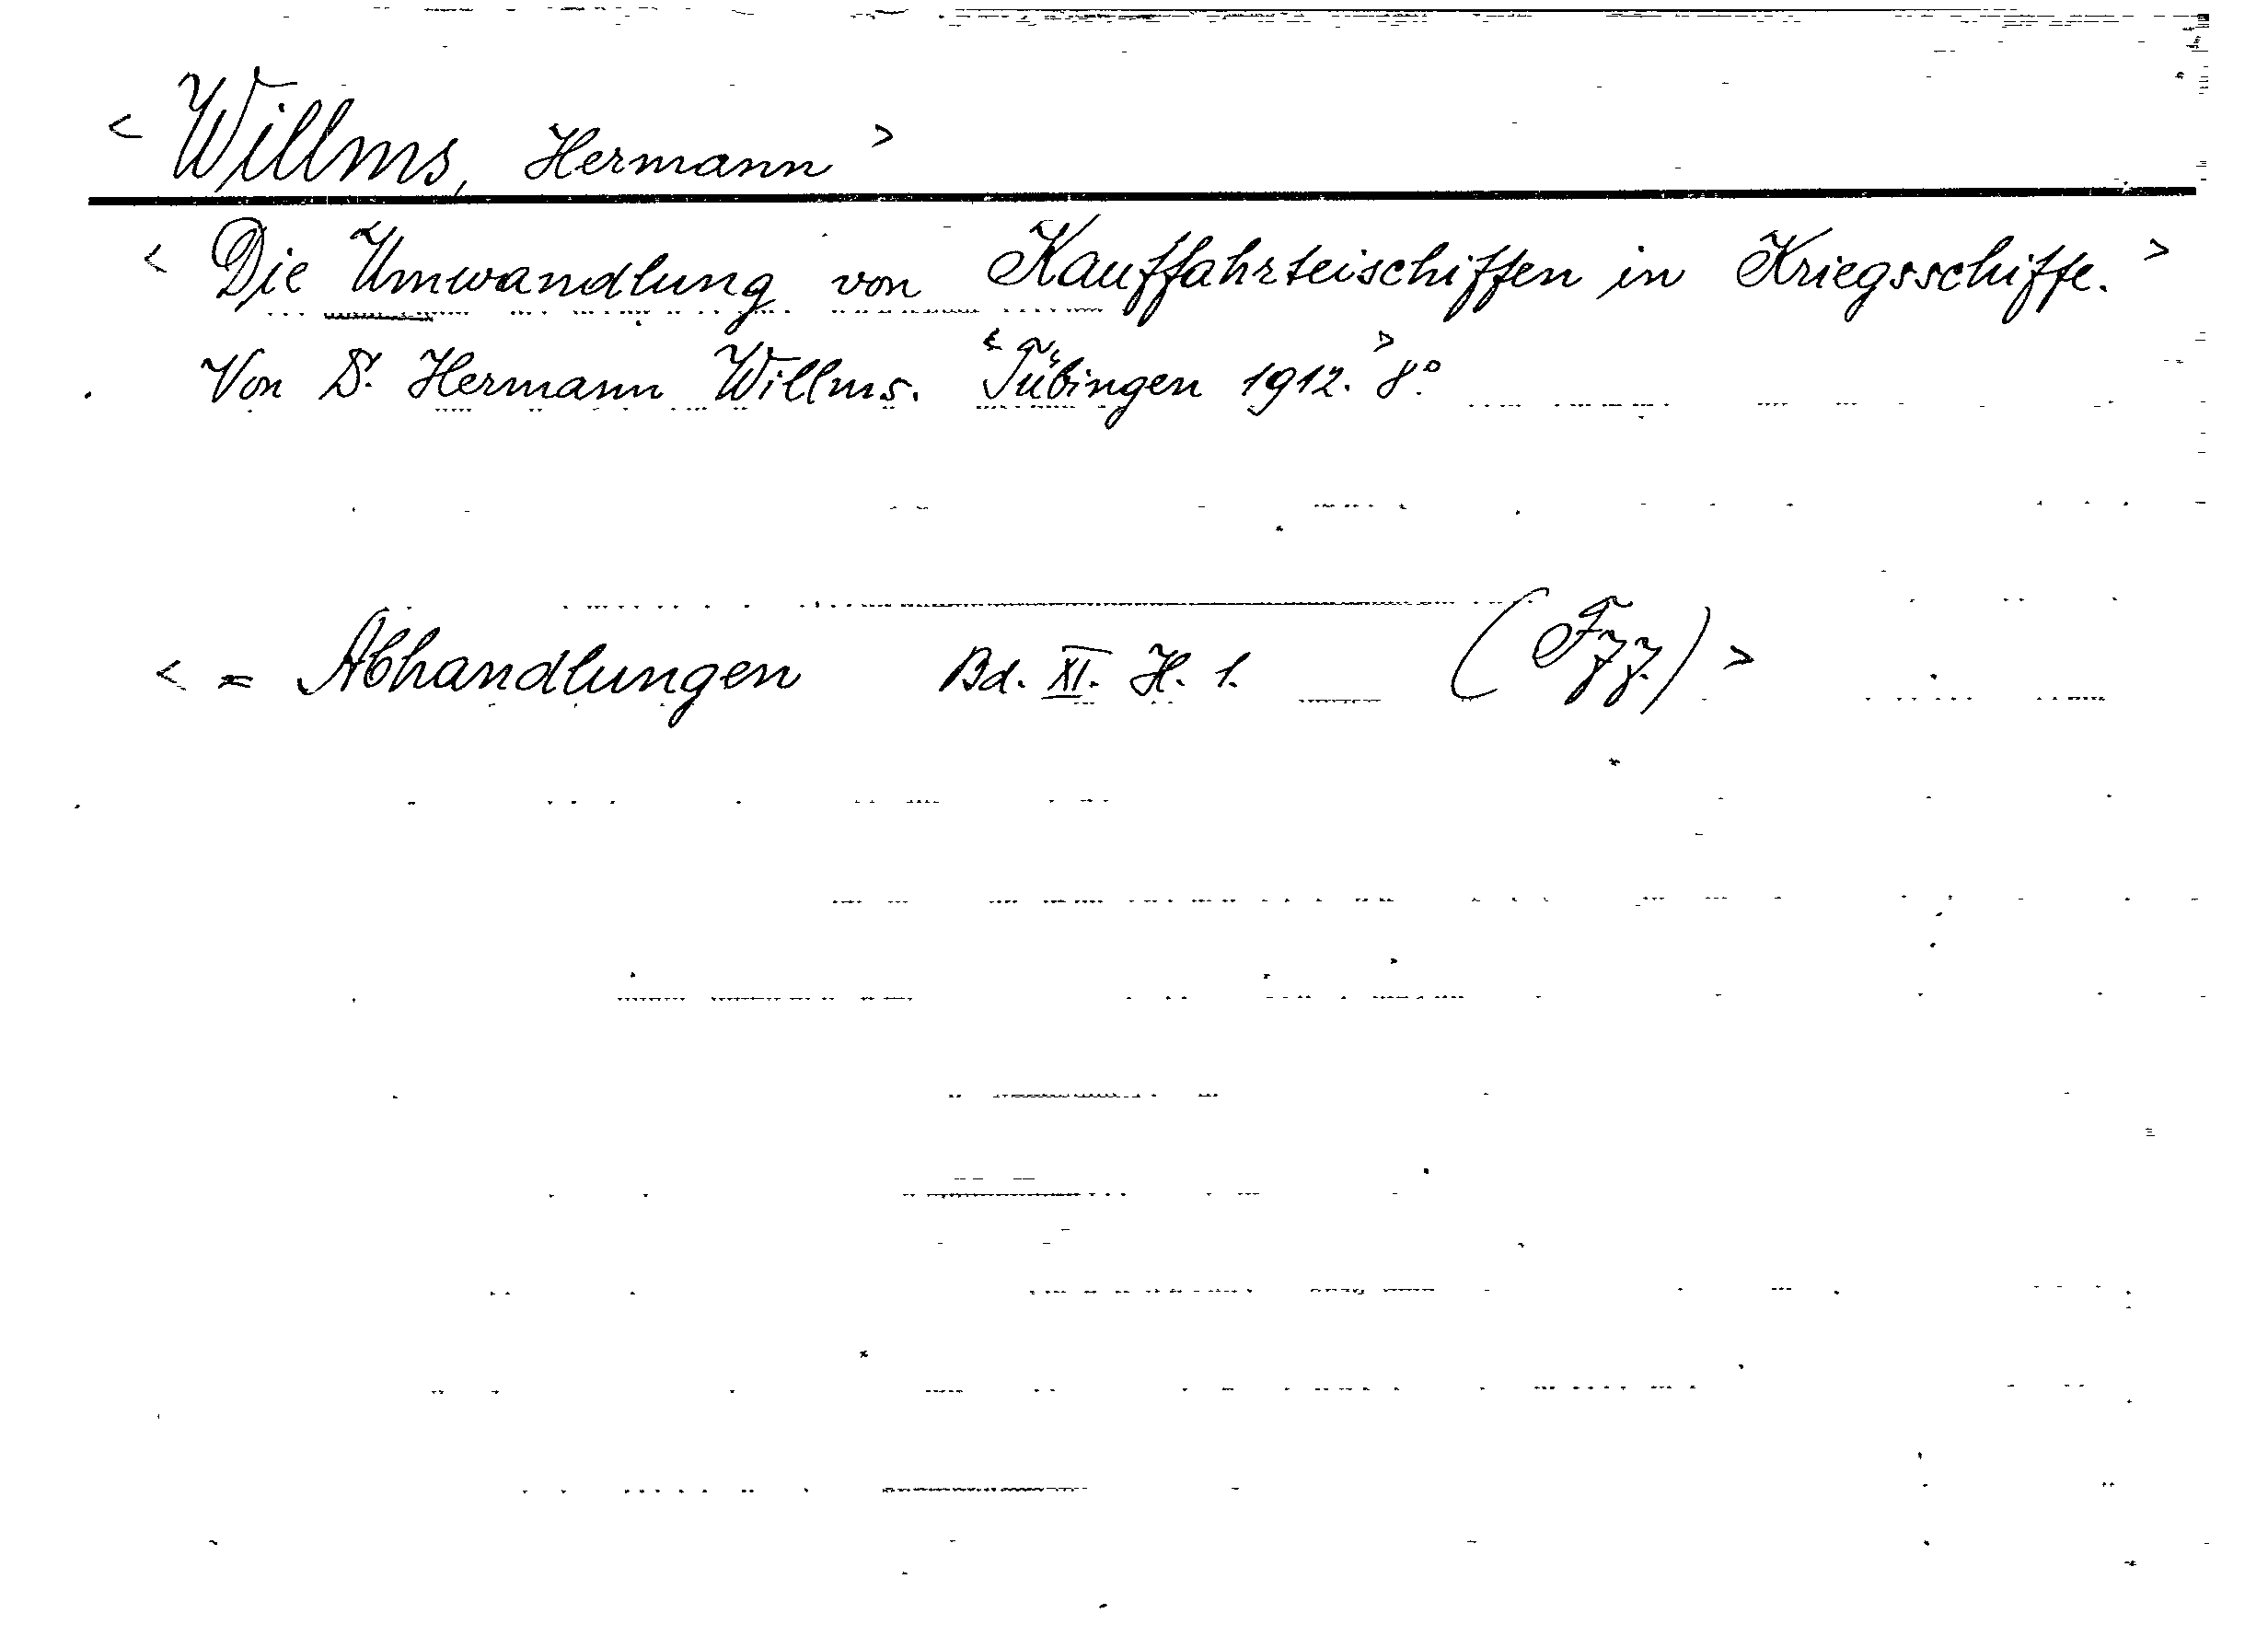 < Willms, Hermann >
< Die Umwandlung von Kauffahrteischiffen in Kriegsschiffe. >
Von Dr. Hermann Willms. < Tübingen 1912. > 8°.
< = Abhandlungen Bd. XI. H. 1. (Fzz.) >